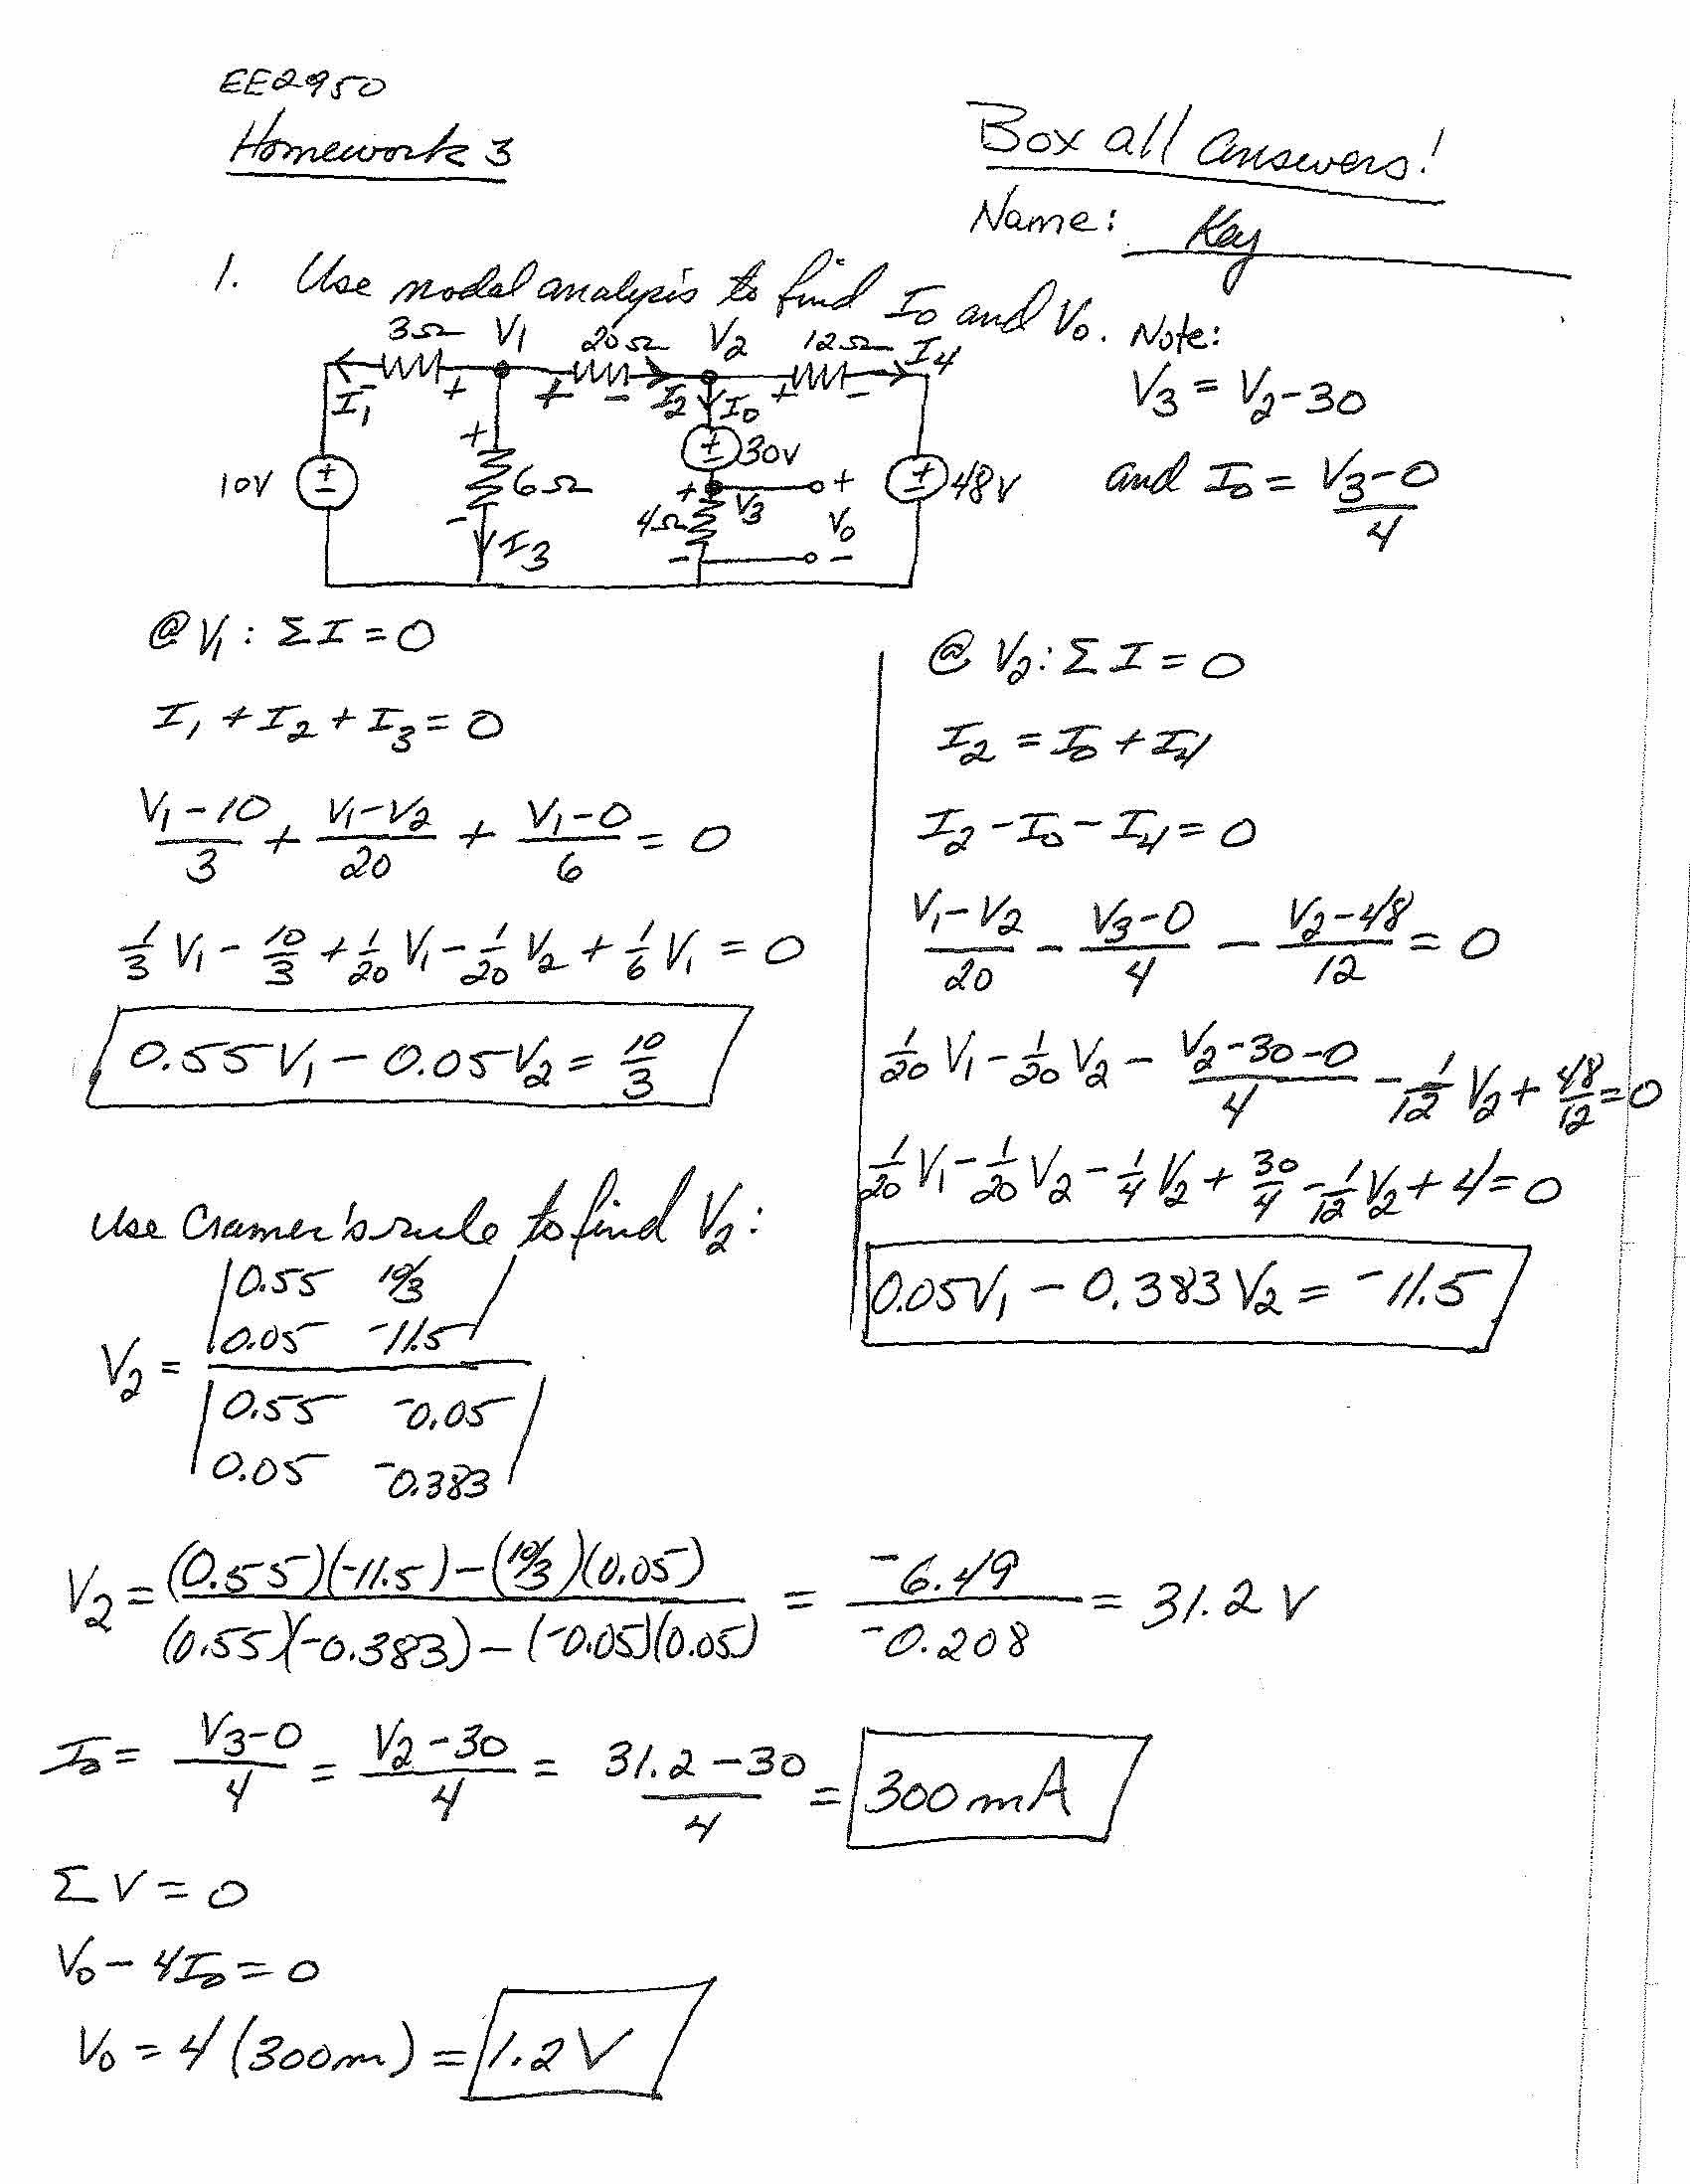 EE2950
Homework 3
Box all answers!
Name: Key
1. Use nodal analysis to find I0 and V0. Note:
3Ω V1 20Ω V2 12Ω I4
I1 + + - I2 I0 + -
V3 = V2-30
10V + - + 6Ω - I3
+ - 30V
+ V3 + 4Ω V0 - -
+ - 48V
and I0 = (V3-0)/4
@ V1: ΣI = 0
I1 + I2 + I3 = 0
(V1-10)/3 + (V1-V2)/20 + (V1-0)/6 = 0
1/3 V1 - 10/3 + 1/20 V1 - 1/20 V2 + 1/6 V1 = 0
0.55V1 - 0.05V2 = 10/3
@ V2: ΣI = 0
I2 = I0 + I4
I2 - I0 - I4 = 0
(V1-V2)/20 - (V3-0)/4 - (V2-48)/12 = 0
1/20 V1 - 1/20 V2 - (V2-30-0)/4 - 1/12 V2 + 48/12 = 0
1/20 V1 - 1/20 V2 - 1/4 V2 + 30/4 - 1/12 V2 + 4 = 0
0.05V1 - 0.383V2 = -11.5
Use Cramer's rule to find V2:
|0.55 10/3|
|0.05 -11.5|
V2 =
|0.55 -0.05|
|0.05 -0.383|
V2 = ((0.55)(-11.5) - (10/3)(0.05))/((0.55)(-0.383) - (-0.05)(0.05)) = -6.49/-0.208 = 31.2 V
I0 = (V3-0)/4 = (V2-30)/4 = (31.2-30)/4 = 300mA
ΣV = 0
V0 - 4I0 = 0
V0 = 4(300m) = 1.2V